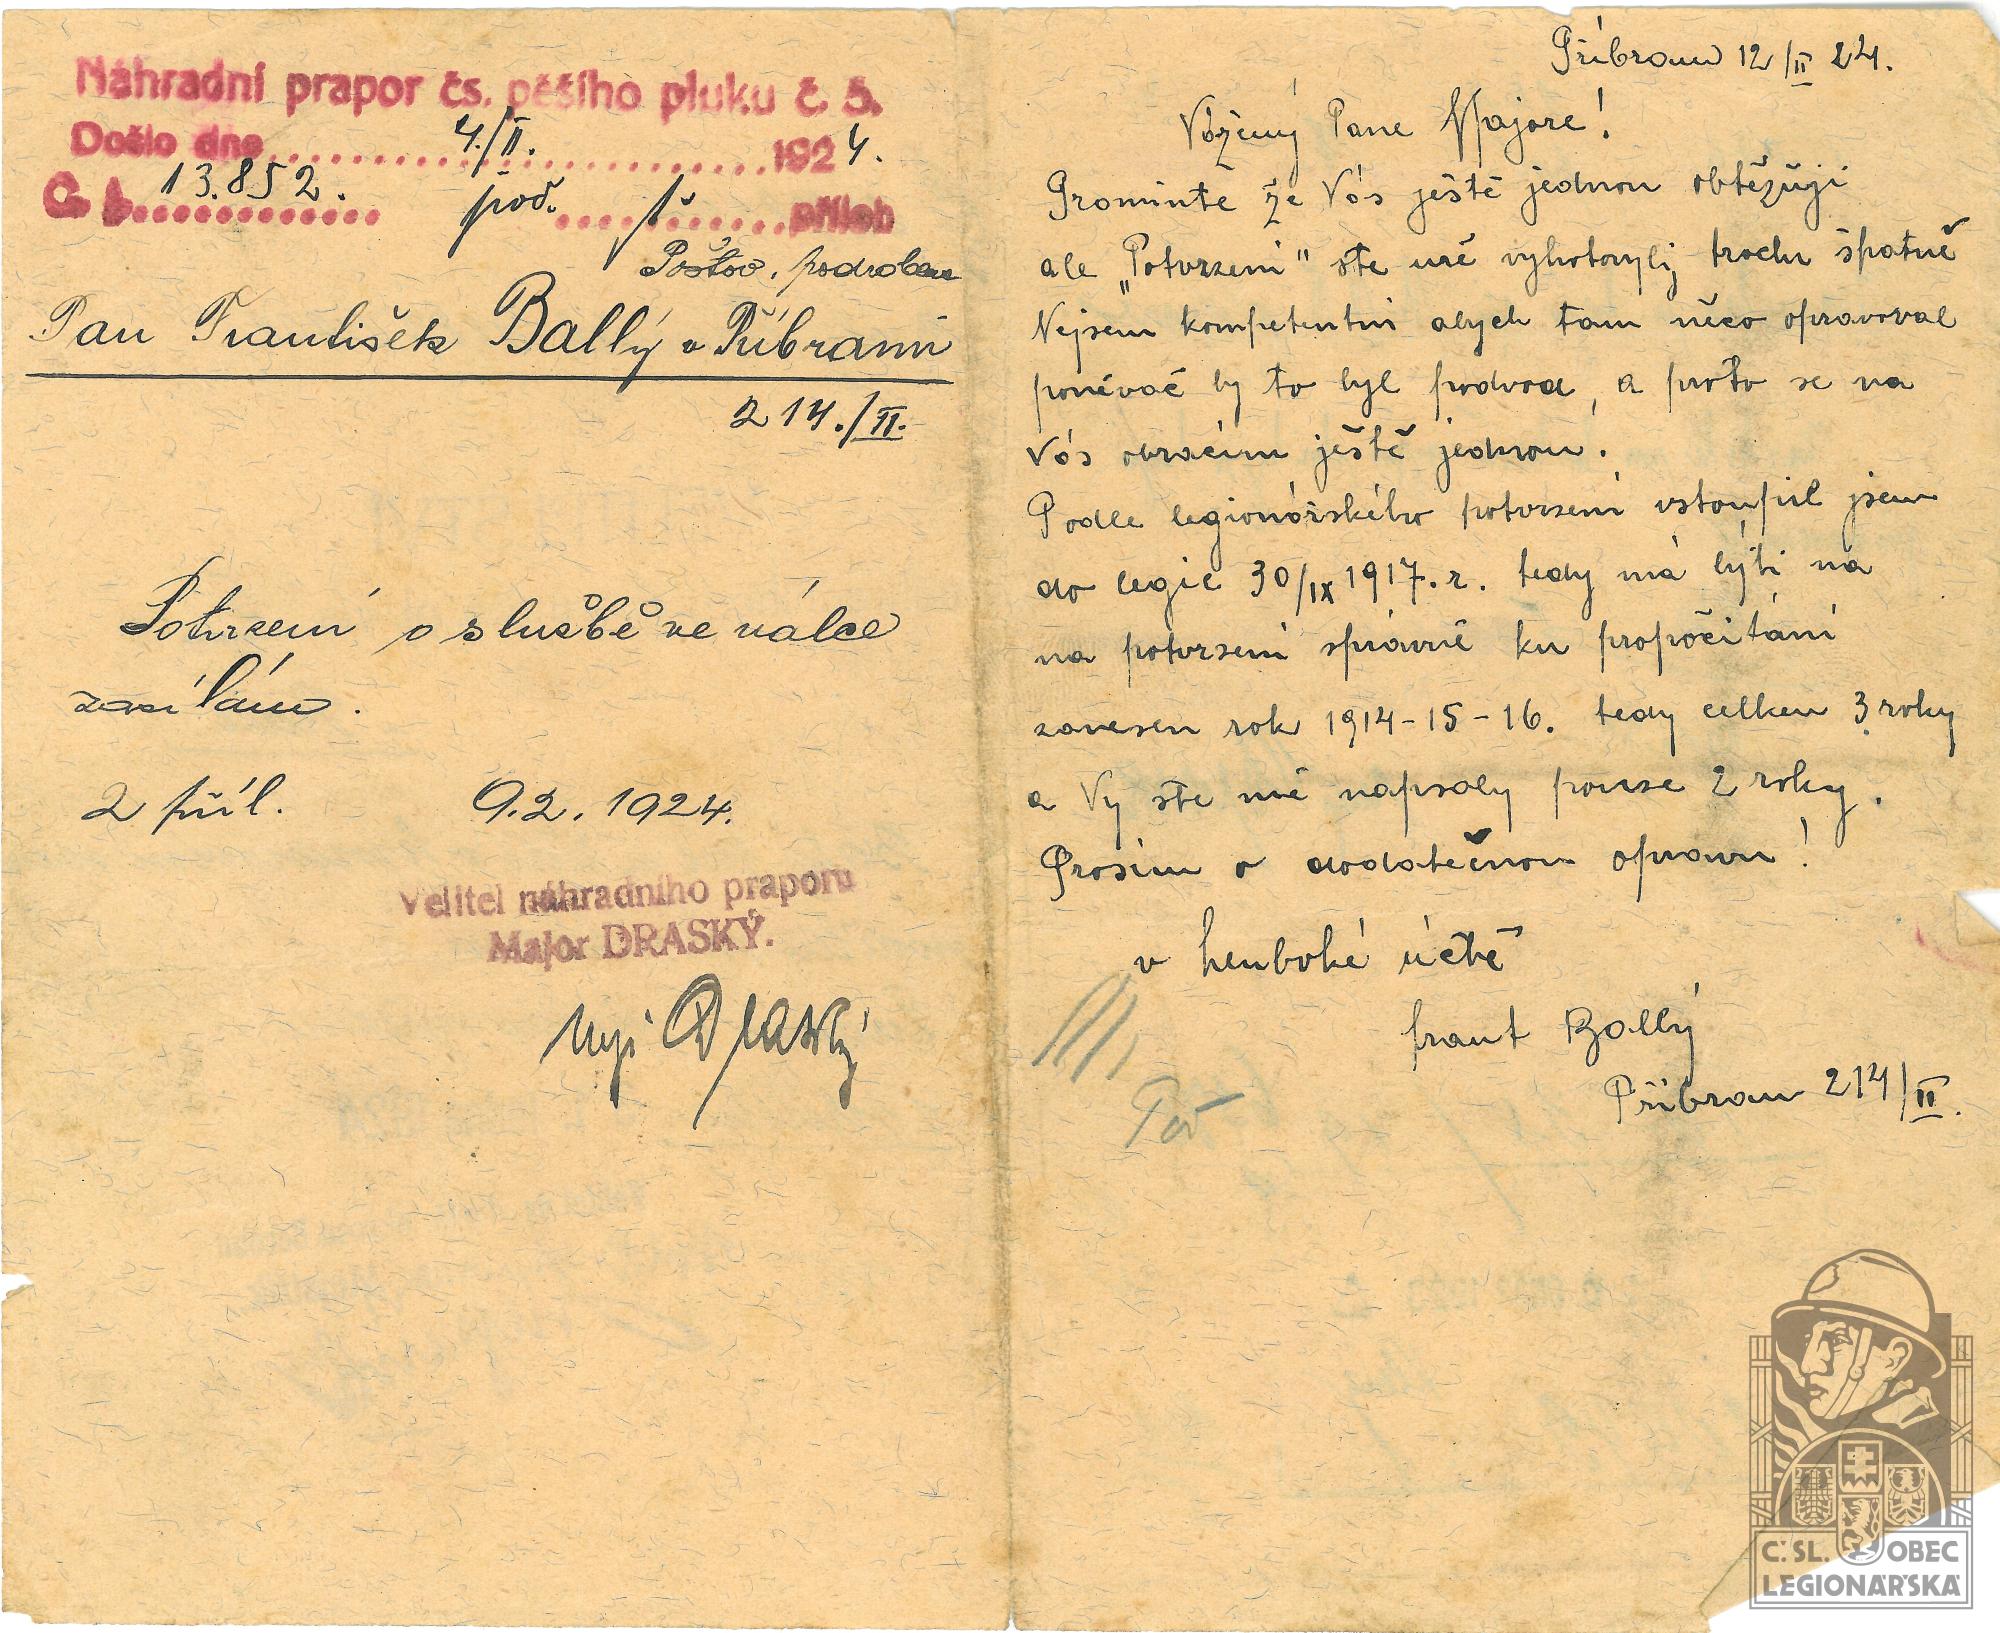 Náhradní prapor čs. pěšího pluku č. 5.
Došlo dne 4./II. 1924.
Č. j. 13.852. poď. příloh
Poštov. podrobeno
Pan František Ballý v Příbrami
214./II.
Potvrzení o službě ve válce
zasílám.
2 příl. 9.2.1924.
Velitel náhradního praporu
Major DRASKÝ.
Mjr Draský
Příbram 12/II 24.
Vážený Pane Majore!
Promiňtě že Vás ještě jednou obtěžuji
ale „Potvrzení" ste mě vyhotovyly trochu špatně
Nejsem kompetentni abych tam něco opravoval
poněvač by to byl podvod, a proto se na
Vás obracím ještě jednou.
Podle legionářského potvrzení vstoupil jsem
do legie 30/IX 1917. r. tedy má býti na
na potvrzení správně ku propočítání
zanesen rok 1914-15-16. tedy celkem 3 roky
a Vy ste mě napsaly pouze 2 roky.
Prosím o dodatečnou opravu!
v hluboké úctě
frant Ballý
Příbram 214/II.
Č. SL. OBEC
LEGIONÁŘSKÁ